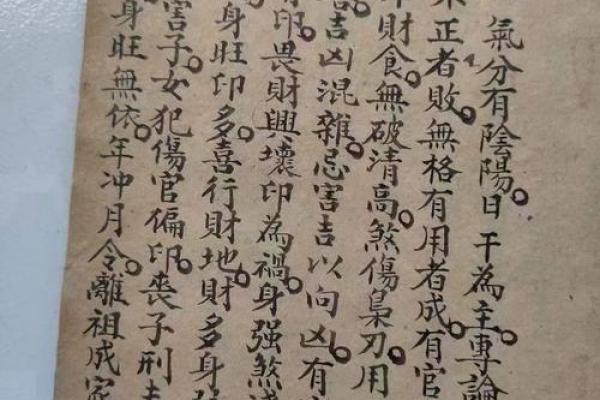 氣分有陰陽。日干為主。專論
正者敗。無格有用者成。有官
財食。無破清高。煞傷梟刃。用
吉凶混雜。忌害吉以向凶。有
印。畏財興壞印為禍。身強煞
身旺印多。喜行財地。財多身
害子女。犯傷官偏印。喪子刑
身旺無依。年冲月令。離祖成